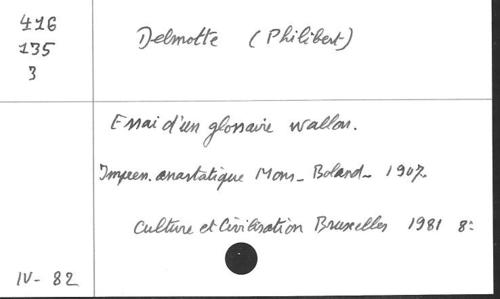 416
135
3
Delmotte (Philibert)
Essai d'un glossaire wallon.
Impren. anastatique Mons - Boland - 1907.
Culture et Civilisation Bruxelles 1981 8:
IV - 82